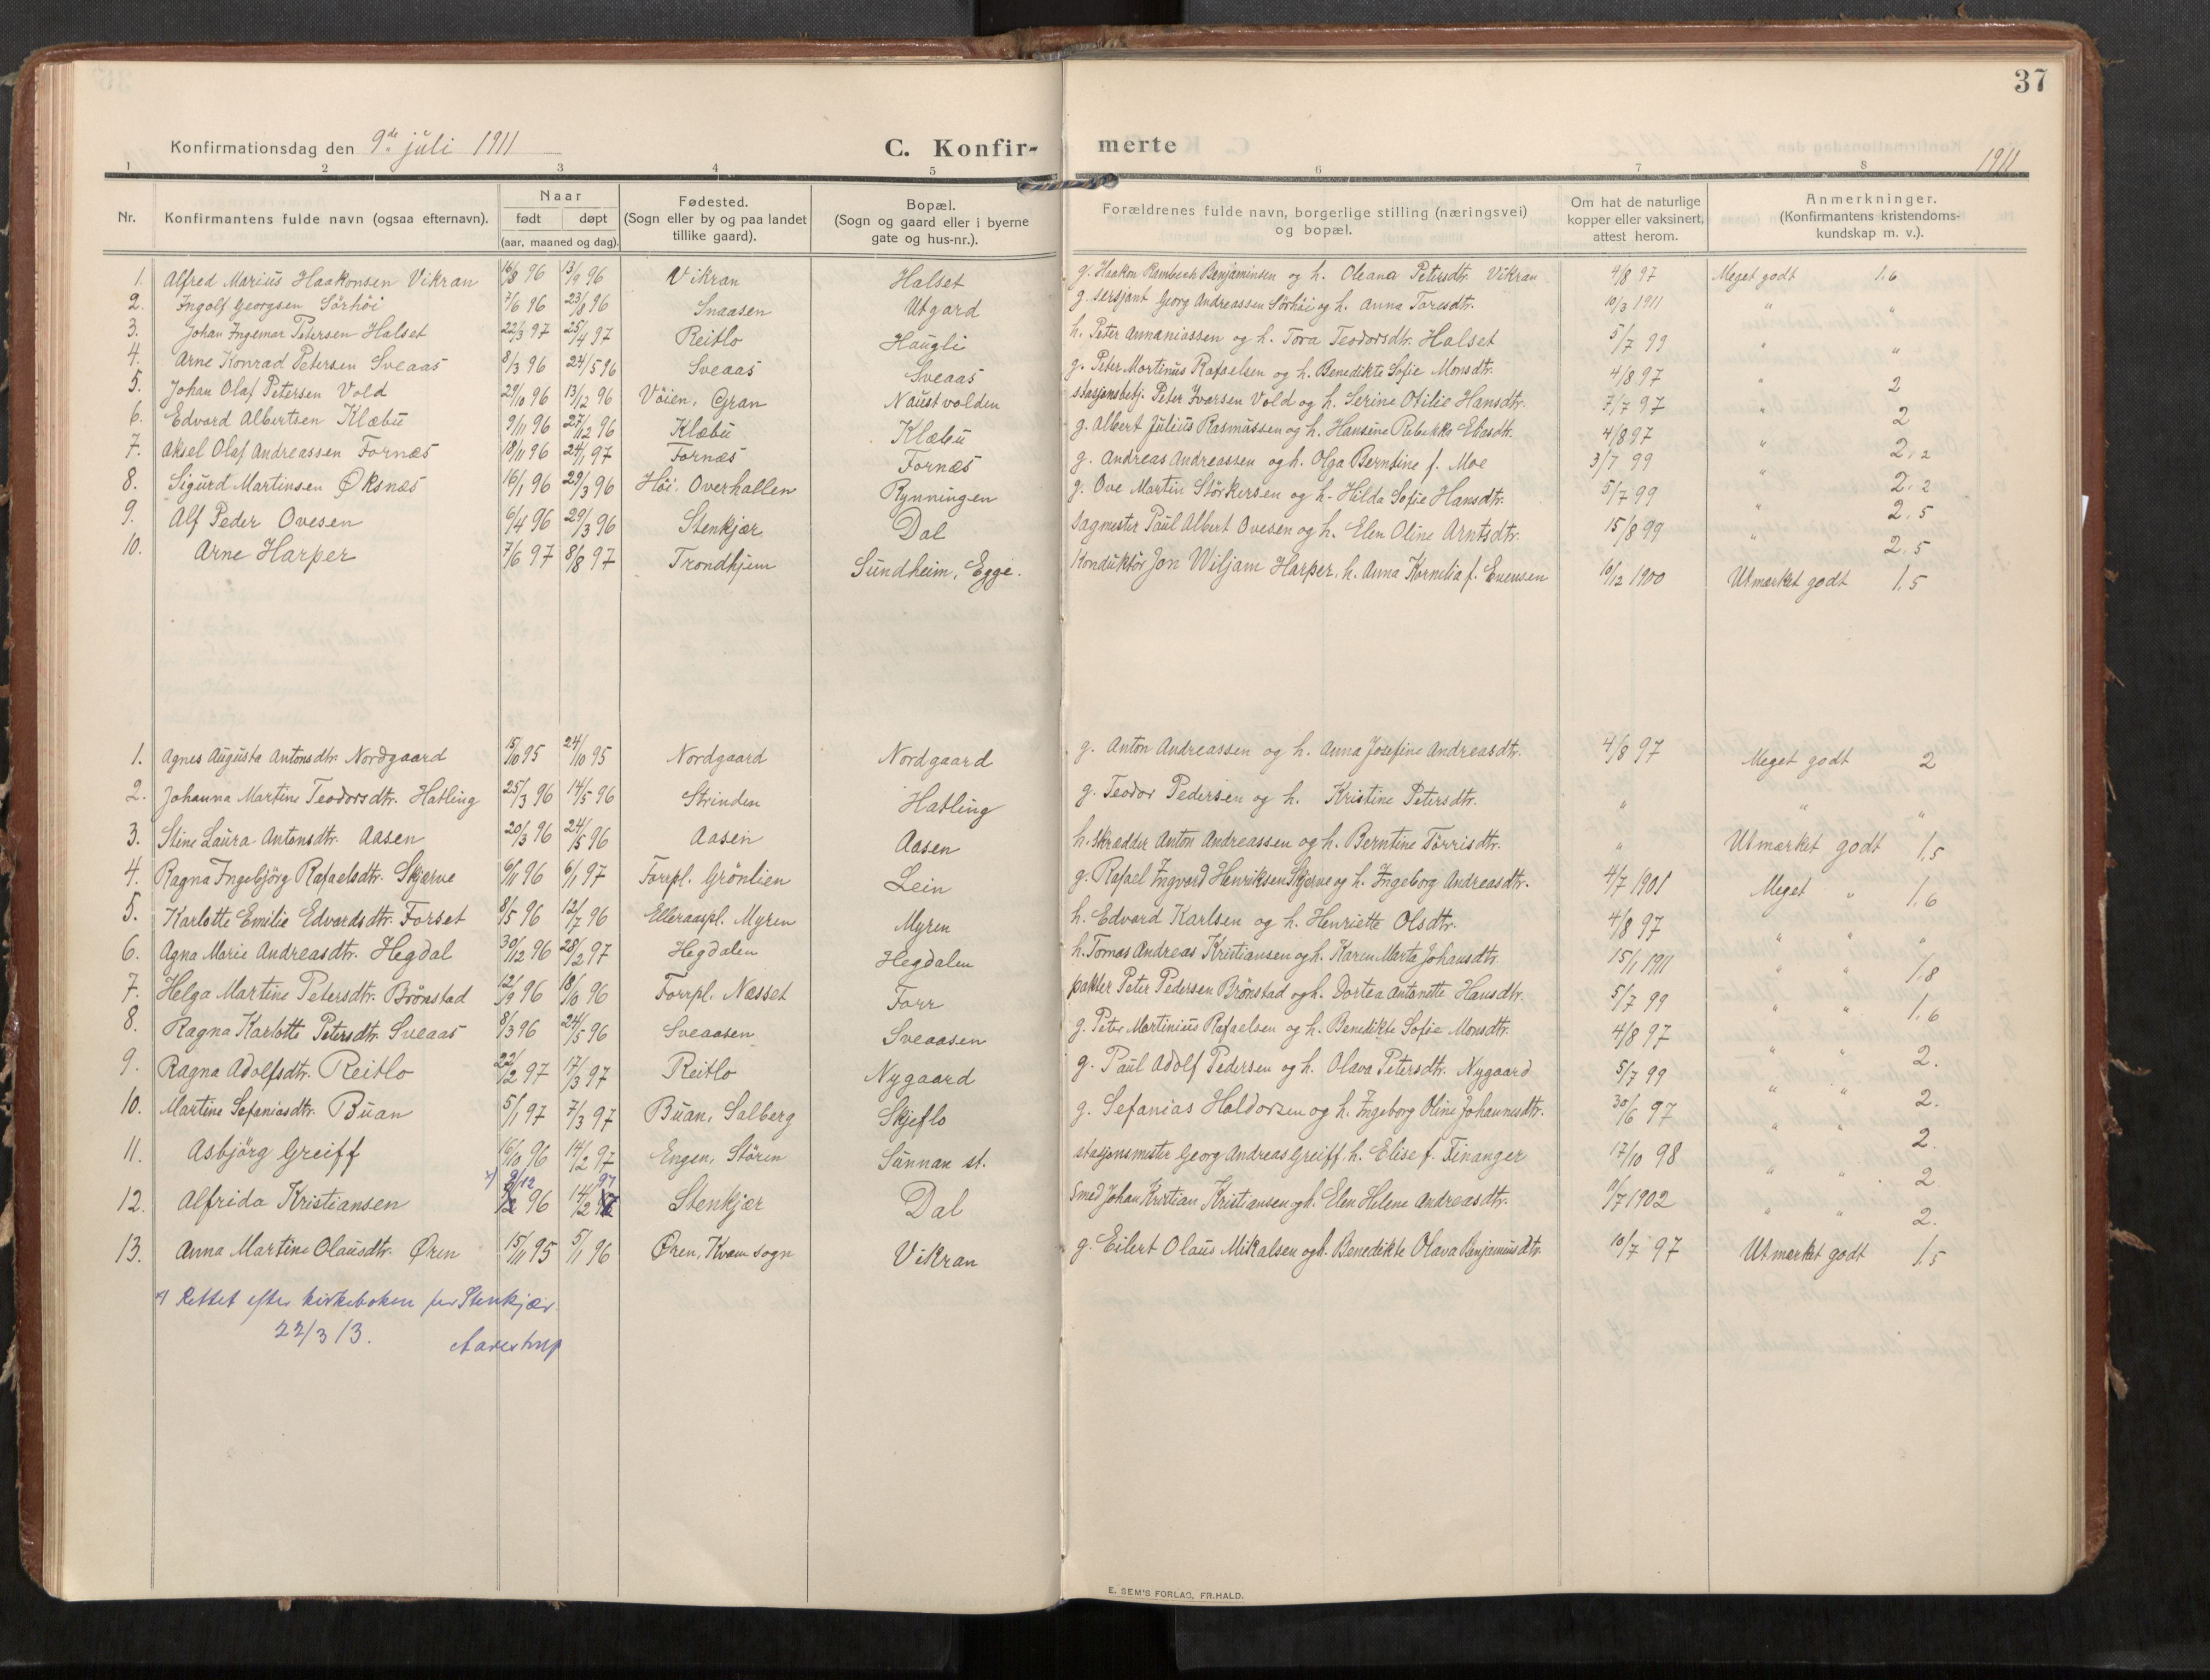 37
Konfirmationsdag den 9de juli 1911
C. Konfir- merte
1911
1 2 3 4 5 6 7 8
Nr. Konfirmantens fulde navn (ogsaa efternavn). Naar født døpt (aar, maaned og dag). Fødested. (Sogn eller by og paa landet tillike gaard). Bopæl. (Sogn og gaard eller i byerne gate og hus-nr.). Forældrenes fulde navn, borgerlige stilling (næringsvei) og bopæl. Om hat de naturlige kopper eller vaksinert, attest herom. Anmerkninger. (Konfirmantens kristendoms-kundskap m. v.).
1. Alfred Marius Haakonsen Vikran 16/8 96 13/9 96 Vikran Halset g. Haakon Rambech Benjaminsen og h. Oleana Petersdtr. Vikran 4/8 97 Meget godt 1.6
2. Ingolf Georgsen Sörhöi 7/6 96 23/8 96 Snaasen Utgard g. sersjant Georg Andreassen Sörhöi og h. Anna Toresdtr. 10/3 1911 " "
3. Johan Ingemar Petersen Halset 22/3 97 25/4 97 Reitlo Haugli h. Peter Annaniassen og h. Tora Teodorsdtr. Halset 5/7 99 " "
4. Arne Konrad Petersen Sveaas 8/3 96 24/5 96 Sveaas Sveaas g. Peter Martinus Rafaelsen og h. Benedikte Sofie Monsdtr. 4/8 97 " 2
5. Johan Olaf Petersen Vold 29/10 96 13/12 96 Vöien, Gran Naustvolden stasjonsbetj. Peter Iversen Vold og h. Serine Otilie Hansdtr. 7/7 97 " 2
6. Edvard Albertsen Klæbu 9/11 96 27/12 96 Klæbu Klæbu g. Albert Julius Rasmussen og h. Hansine Rebekka Eliasdtr. 4/8 97 " 2,2
7. Aksel Olaf Andreassen Fornæs 18/11 96 24/1 97 Fornæs Fornæs g. Andreas Andreassen og h. Olga Berntine f. Moe 3/7 99 " 2,2
8. Sigurd Martinsen Øksnæs 16/1 96 29/3 96 Höi, Overhallen Rynningen g. Ove Martin Störkersen og h. Hilda Sofie Hansdtr. 5/7 99 " 2,5
9. Alf Peder Ovesen 6/4 96 29/3 96 Stenkjær Dal sagmester Paul Albert Ovesen og h. Elen Oline Arntsdtr. 15/8 99 " 2,5
10. Arne Harper 7/6 97 8/8 97 Trondhjem Sundheim, Egge. Konduktör Jon Wiljam Harper, h. Anna Kornelia f. Evensen 6/12 1900 Utmerket godt 1,5
1. Agnes Augusta Antonsdtr. Nordgaard 15/10 95 24/10 95 Nordgaard Nordgaard g. Anton Andreassen og h. Anna Josefine Andreasdtr. 4/8 97 Meget godt 2
2. Johanna Martine Teodorsdtr. Hatling 25/3 96 14/5 96 Strinden Hatling g. Teodor Pedersen og h. Kristine Petersdtr. " " "
3. Stine Laura Antonsdtr. Aasen 20/3 96 24/5 96 Aasen Aasen h. skrædder Anton Andreassen og h. Berntine Törrisdtr. " Utmærket godt 1,5
4. Ragna Ingebjörg Rafaelsdtr. Skjærve 6/11 96 6/1 97 Forrpl. Grönlien Lein g. Rafael Ingvard Henriksen Skjerve og h. Ingeborg Andreasdtr. 4/7 1901 Meget " 1,6
5. Karlotte Emilie Edvardsdtr. Forset 8/5 96 12/7 96 Elleraaspl. Myren Myren h. Edvard Karlsen og h. Henriette Olsdtr. 4/8 97 " " "
6. Agna Marie Andreasdtr. Hegdal 30/12 96 28/2 97 Hegdalen Hegdalen h. Tomas Andreas Kristiansen og h. Karen Marta Johansdtr. 15/1 1911 " " 1,8
7. Helga Martine Petersdtr. Brönstad 12/9 96 18/10 96 Forrpl. Næsset Forr pakter Peter Pedersen Brönstad og h. Dortea Antonette Hansdtr. 5/7 99 " " 1,6
8. Ragna Karlotte Petersdtr. Sveaas 8/3 96 24/5 96 Sveaasen Sveaasen g. Peter Martinius Rafaelsen og h. Benedikte Sofie Monsdtr. 4/8 97 " " 2.
9. Ragna Adolfsdtr. Reitlo 22/2 97 17/3 97 Reitlo Nygaard g. Paul Adolf Pedersen og h. Olava Petersdtr. Nygaard 5/7 99 " " 2.
10. Martine Sefaniasdtr. Buan 5/1 97 7/3 97 Buan, Salberg Skjeflo g. Sefanias Haldorsen og h. Ingeborg Oline Johannesdtr. 30/6 97 " " 2.
11. Asbjörg Greiff 16/10 96 14/2 97 Engen, Stören Sunnan st. stasjonsmester Georg Andreas Greiff, h. Elise f. Finanger 17/10 98 " " 2
12. Alfrida Kristiansen x) 9/12 96 14/2 97 Stenkjær Dal smed Johan Kristian Kristiansen og h. Elen Helene Andreasdtr. 9/7 1902 " " 2.
13. Anna Martine Olausdtr. Øren 15/11 95 5/1 96 Øren, Kvam sogn Vikran g. Eilert Olaus Mikalsen og h. Benedikte Olava Benjaminsdtr. 10/7 97 Utmerket godt 1,5
x) Rettet efter kirkeboken for Stenkjær.
22/3 13. Aarestrup
E. SEM'S FORLAG, FR.HALD.